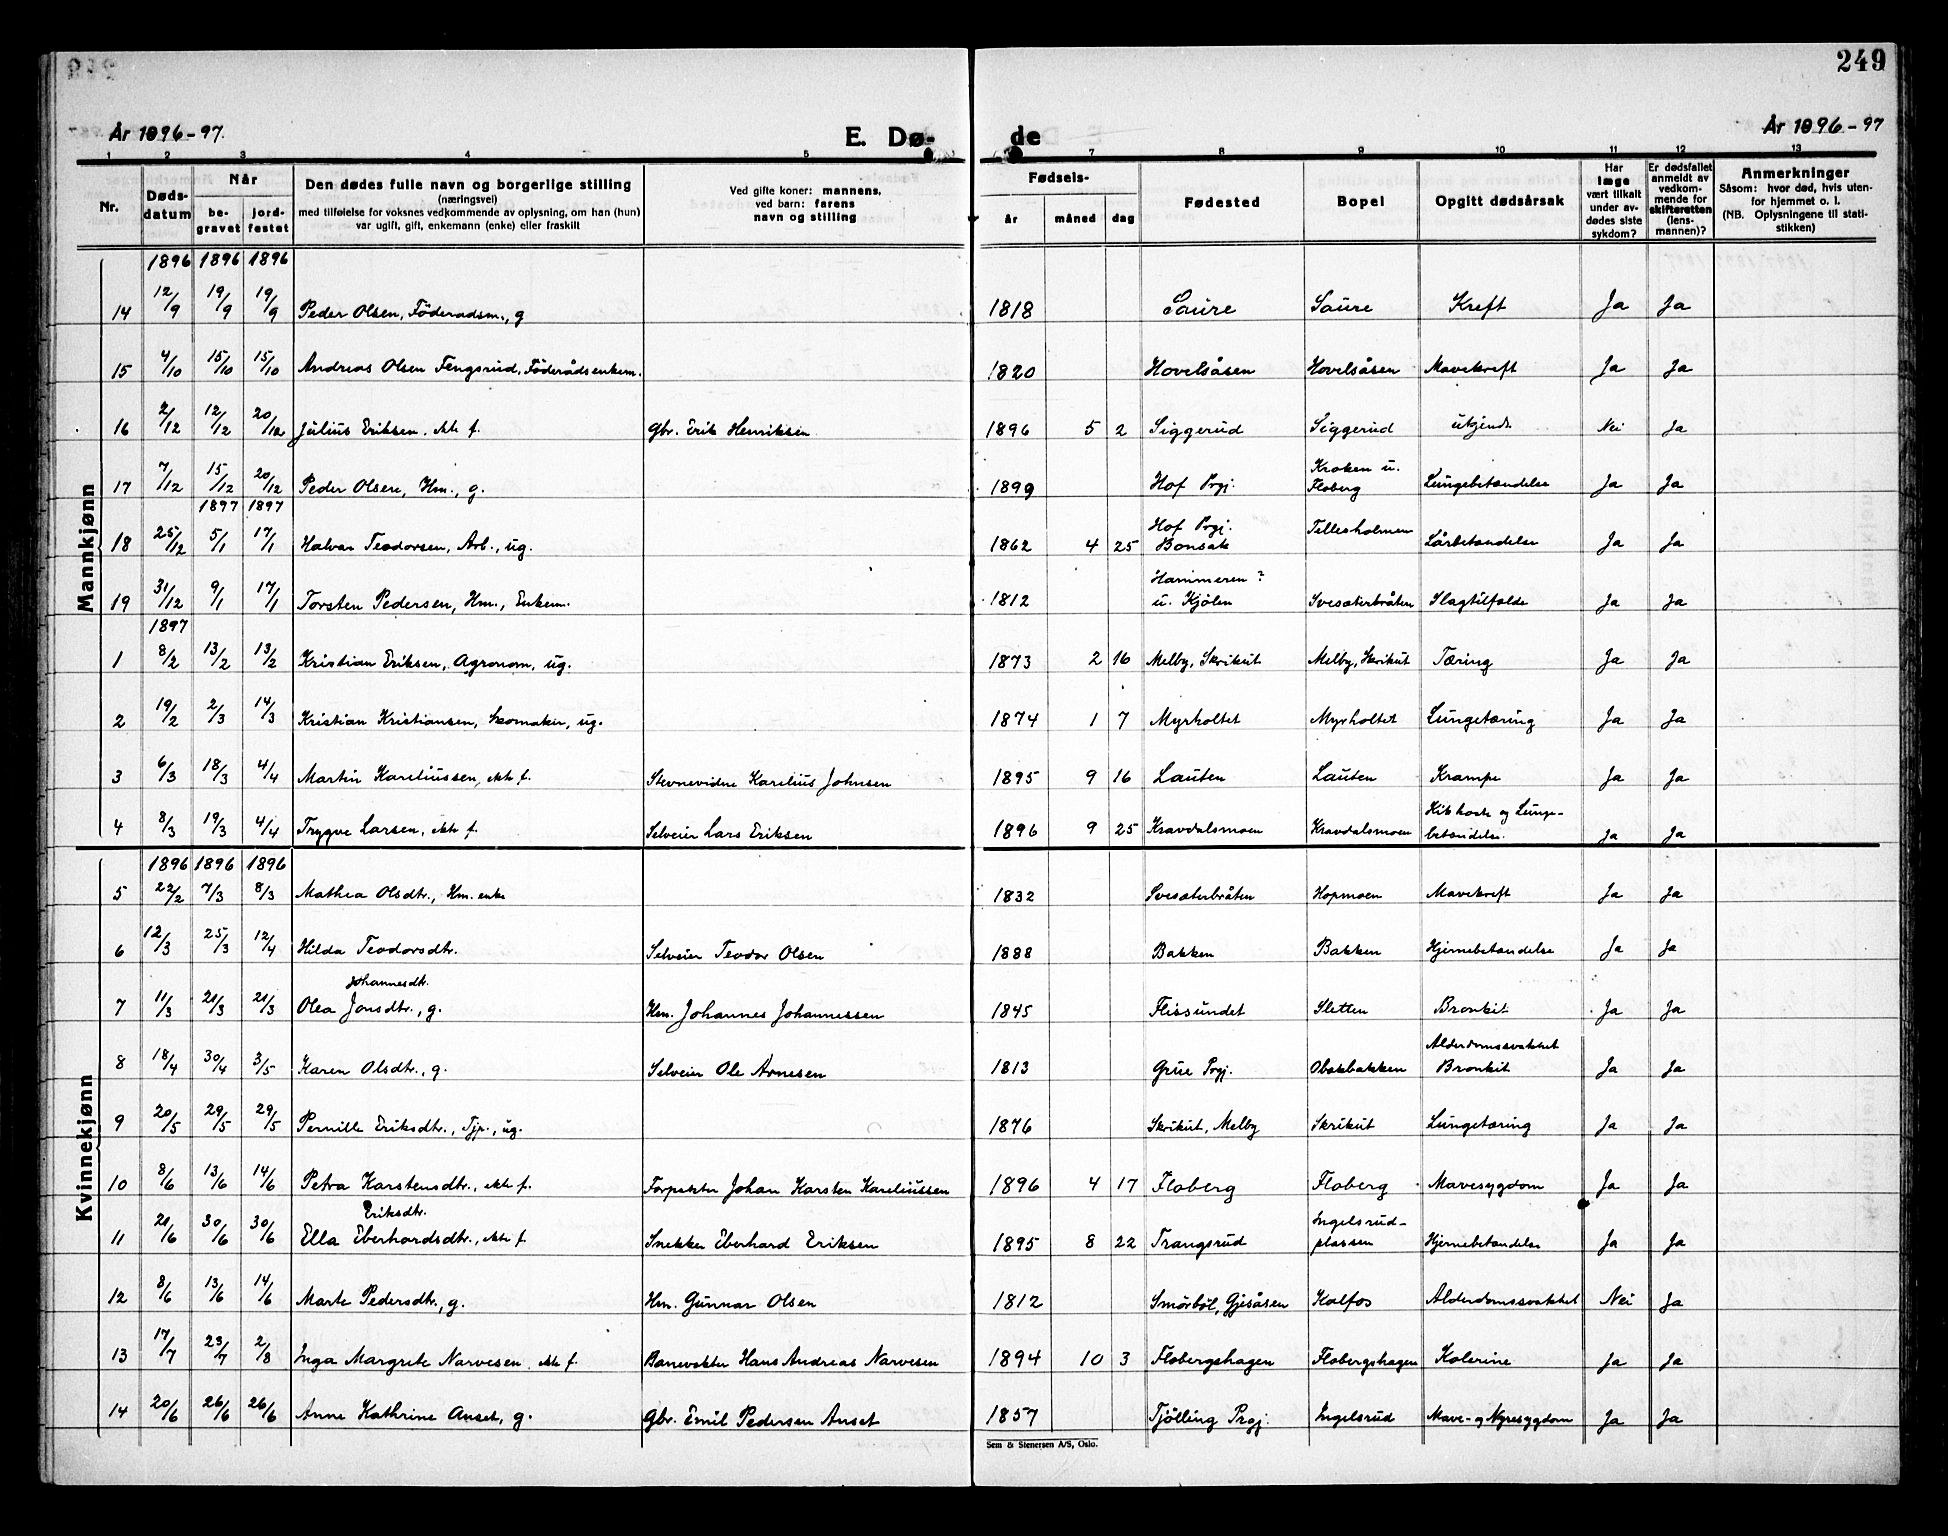 249
År 1896-97.
E. Dø-
de
År 1896-97
1 2 3 4 5 7 8 9 10 11 12 13
Nr. Døds-datum Når be-gravet jord-festet Den dødes fulle navn og borgerlige stilling (næringsvei) med tilføielse for voksnes vedkommende av oplysning, om han (hun) var ugift, gift, enkemann (enke) eller fraskilt Ved gifte koner: mannens, ved barn: farens navn og stilling Fødsels- år måned dag Fødested Bopel Opgitt dødsårsak Har læge vært tilkalt under av-dødes siste sykdom? Er dødsfallet anmeldt av vedkom-mende for skifteretten (lens-mannen)? Anmerkninger Såsom: hvor død, hvis uten-for hjemmet o. l. (NB. Oplysningene til stati-stikken)
Mannkjønn
1896 1896 1896
14 12/9 19/9 19/9 Peder Olsen, Föderadsm., g 1818 Saure Saure Kreft Ja Ja
15 4/10 15/10 15/10 Andreas Olsen Fengsrud, Föderådsenkem. 1820 Hovelsåsen Hovelsåsen Mavekreft Ja Ja
16 2/12 12/12 20/12 Julius Eriksen, ekte f. Gbr. Erik Henriksen 1896 5 2 Siggerud Siggerud utgjend. Nei Ja
17 7/12 15/12 20/12 Peder Olsen, Hm., g. 1899 Hof Prgj. Kroken u. Floberg Lungebetændelse Ja Ja
1897 1897
18 25/12 5/1 17/1 Halvar Teodorsen, Arb., ug. 1862 4 25 Hof Prgj. Bonsak Tellesholmen Lårbetændelse Ja Ja
19 31/12 9/1 17/1 Torsten Pedersen, Hm., Enkem. 1812 Hammeren? u. Kjölen Svesæterbråten Slagtilfælde Ja Ja
1897
1 8/2 13/2 13/2 Kristian Eriksen, Agronom, ug. 1873 2 16 Melby, Skrikut Melby, Skrikut Tæring Ja Ja
2 19/2 2/3 14/3 Kristian Kristiansen, Skomaker, ug. 1874 1 7 Myrholtet Myrholtet Lungetæring Ja Ja
3 6/3 18/3 4/4 Martin Kareliussen, ekte f. Stevnevidne Karelius Johnsen 1895 9 16 Lauten Lauten Krampe Ja Ja
4 8/3 19/3 4/4 Trygve Larsen, ekte f. Selveier Lars Eriksen 1896 9 25 Kravdalsmoen Kravdalsmoen Kikhoste og Lunge-betændelse. Ja Ja
Kvinnekjønn
1896 1896 1896
5 22/2 7/3 8/3 Mathea Olsdtr., Hm. enke 1832 Svesæterbråten Hopmoen Mavekreft Ja Ja
6 12/3 25/3 12/4 Hilda Teodorsdtr. Selveier Teodor Olsen 1888 Bakken Bakken Hjernebetændelse Ja Ja
Johannesdtr.
7 11/3 21/3 21/3 Olea Jonsdtr., g. Hm. Johannes Johannessen 1845 Flissundet Sletten Bronkit Ja Ja
8 18/4 30/4 3/5 Karen Olsdtr., g. Selveier Ole Arnesen 1813 Grue Prgj. Obakbakken Alderdomssvakhet Bronkit Ja Ja
9 20/5 29/5 29/5 Pernille Eriksdtr., Tjp., ug. 1876 Skrikut, Melby Skrikut Lungetæring Ja Ja
10 8/6 13/6 14/6 Petra Karstensdtr., ekte f. Forpakter Johan Karsten Kareliussen 1896 4 17 Floberg Floberg Mavesygdom Ja Ja
Eriksdtr.
11 21/6 30/6 30/6 Ella Eberhardsdtr., ekte f. Snekker Eberhard Eriksen 1895 8 22 Trangsrud Ingelsrud-plassen Hjernebetændelse Ja Ja
12 8/6 13/6 14/6 Marte Pedersdtr., g. Hm. Gunnar Olsen 1812 Smörböl, Gjesåsen Kalfos Alderdomssvakhet Nei Ja
13 17/7 23/7 2/8 Inga Margrete Narvesen, ekte f. Banevokter Hans Andreas Narvesen 1894 10 3 Flobergshagen Flobergshagen Kolerine Ja Ja
14 20/6 26/6 26/6 Anne Kathrine Anset, g. Gbr. Emil Pedersen Anset 1857 Tjölling Prgj. Ingelsrud Mave- og Nyresygdom Ja Ja
Sem & Stenersen A/S, Oslo.